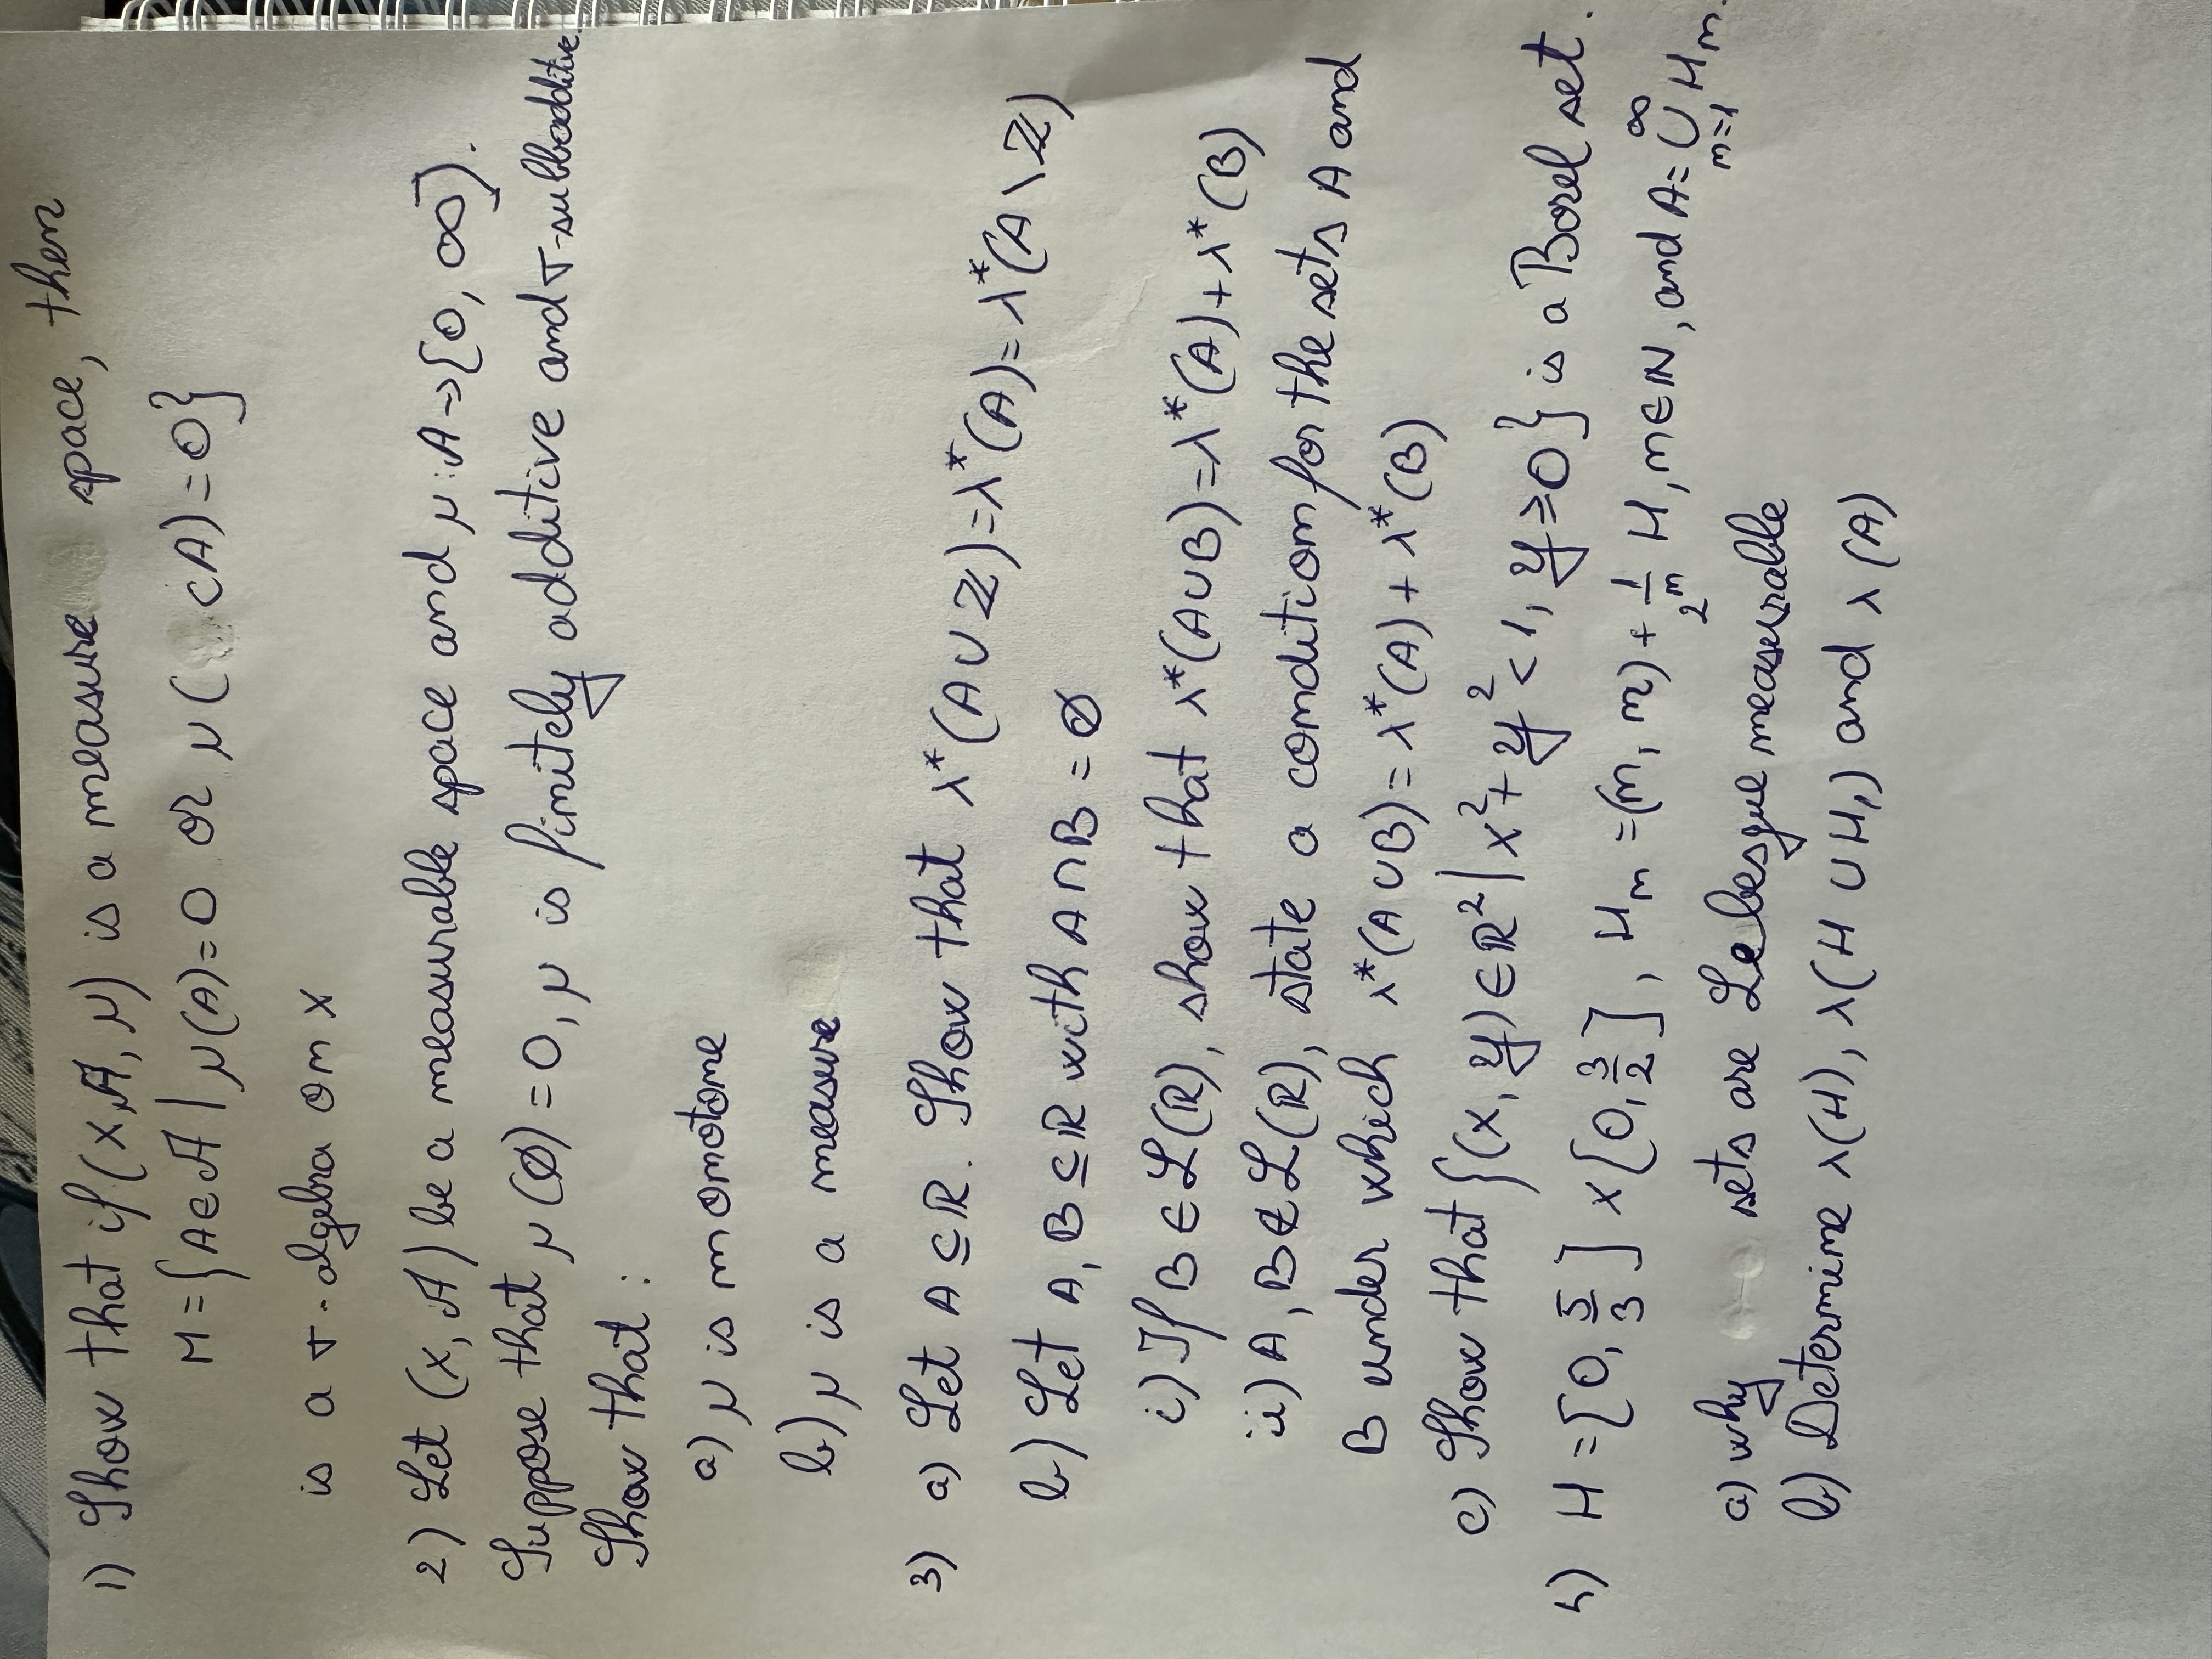 1) Show that if (X, A, μ) is a measure space, then
M = {A ∈ A | μ(A) = 0 or μ( cA) = 0}
is a σ-algebra on X
2) Let (X, A) be a measurable space and μ : A → [0, ∞].
Suppose that μ(∅) = 0, μ is finitely additive and σ-subbadditive.
Show that :
a) μ is monotone
b) μ is a measure
3) a) Let A ⊆ ℝ. Show that λ*(A ∪ ℤ) = λ*(A) = λ*(A \ ℤ)
b) Let A, B ⊆ ℝ with A ∩ B = ∅
i) If B ∈ L(ℝ), show that λ*(A ∪ B) = λ*(A) + λ*(B)
ii) A, B ∉ L(ℝ), state a condition for the sets A and
B under which λ*(A ∪ B) = λ*(A) + λ*(B)
c) Show that {(x, y) ∈ ℝ² | x² + y² < 1, y ≥ 0} is a Borel set.
4) H = [0, 5/3] × [0, 3/2], Hn = (n, n) + 1/2ⁿ H, n ∈ ℕ, and A = ∪_{n=1}^{∞} Hn.
a) why sets are Lebesgue measurable
b) Determine λ(H), λ(H ∪ H₁) and λ(A)